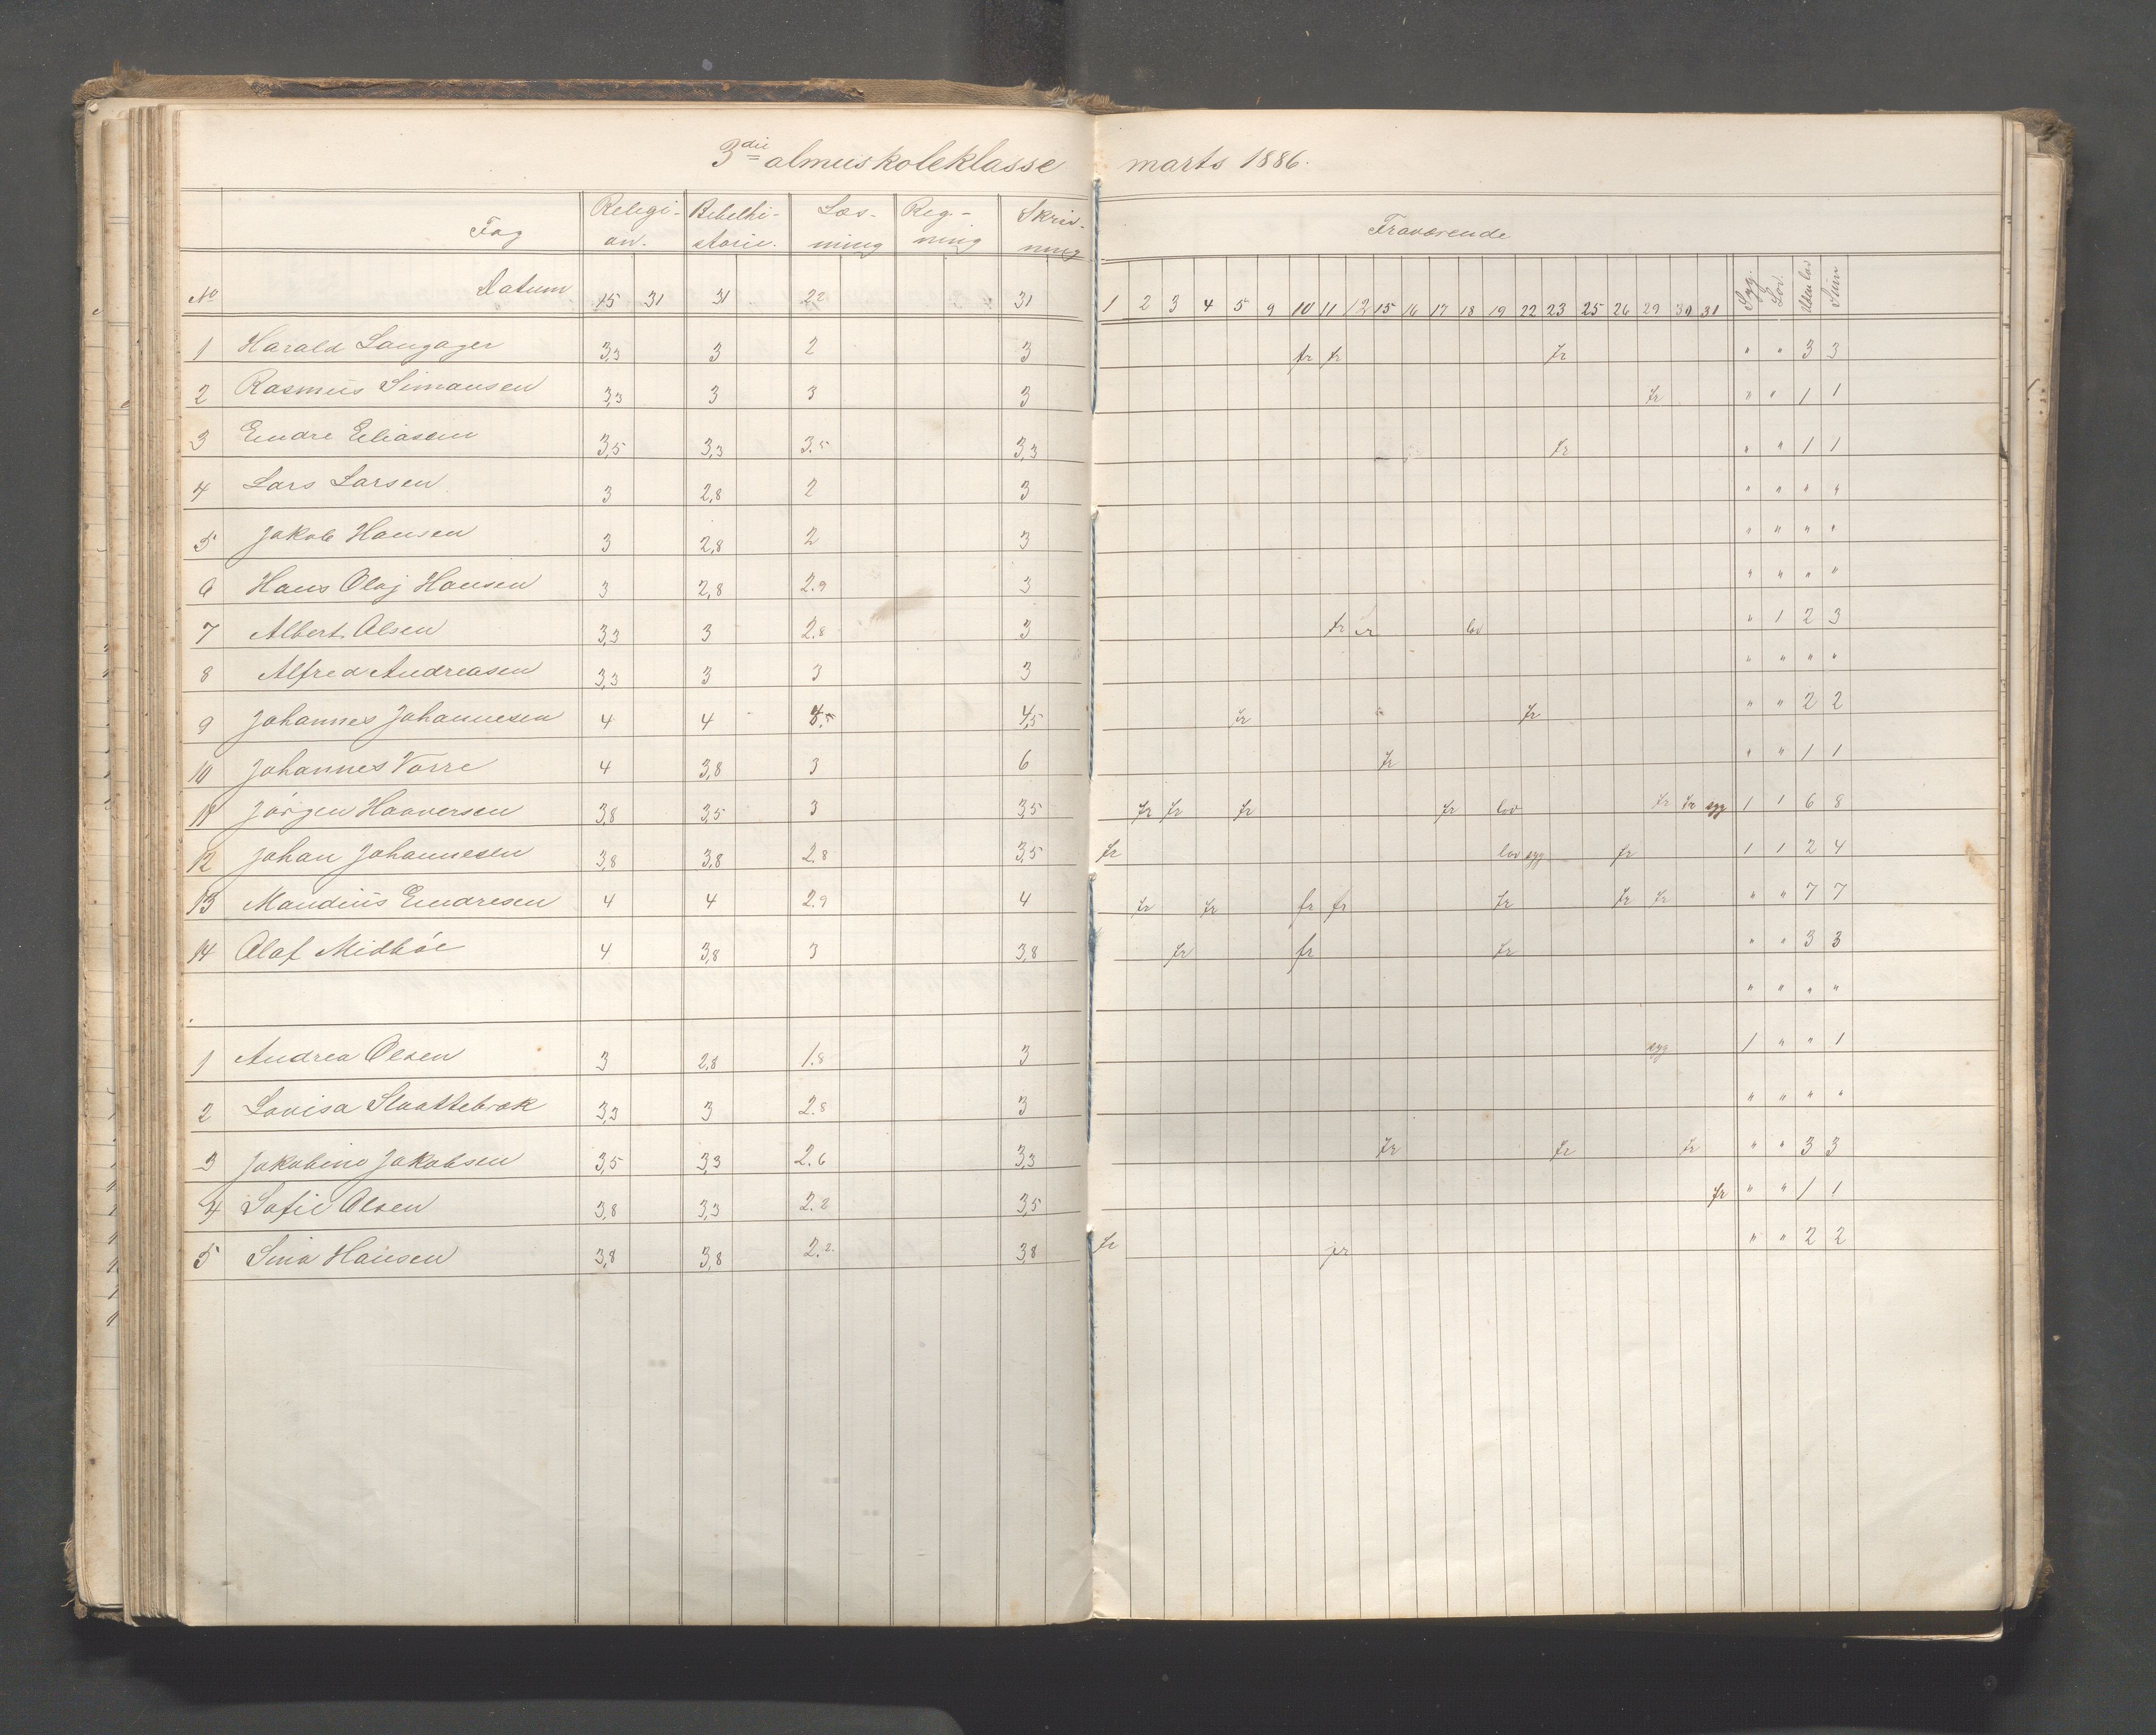 3die almueskoleklasse marts 1886.
Fag Religi-on. Bibelhi-storie. Læs-ning Reg-ning Skriv-ning Fraværende
No Datum 15 31 31 22 31 1 2 3 4 5 9 10 11 12 15 16 17 18 19 22 23 25 26 29 30 31 Syg. Lov. Uden lov Sum
1 Harald Langager 3,3 3 2 3 fr fr fr " " 3 3
2 Rasmus Simonsen 3,3 3 3 3 fr " " 1 1
3 Endre Eliasen 3,5 3,3 3.5 3,3 fr " " 1 1
4 Lars Larsen 3 2,8 2 3 " " " "
5 Jakob Hansen 3 2,8 2 3 " " " "
6 Hans Olaj Hansen 3 2,8 2.9 3 " " " "
7 Albert Olsen 3,3 3 2.8 3 fr fr lov " 1 2 3
8 Alfred Andreasen 3,3 3 3 3 " " " "
9 Johannes Johannesen 4 4 4,5 fr fr " " 2 2
10 Johannes Vorre 4 3,8 3 6 fr " " 1 1
11 Jörgen Haaversen 3,8 3,5 3 3,5 fr fr fr fr lov fr fr syg 1 1 6 8
12 Johan Johannesen 3,8 3,8 2.8 3,5 fr lov syg fr 1 1 2 4
13 Mandius Endresen 4 4 2.9 4 fr fr fr fr fr fr fr " " 7 7
14 Olaf Midböe 4 3,8 3 3,8 fr fr fr " " 3 3
" " " "
1 Andrea Olsen 3 2,8 1.8 3 syg 1 " " 1
2 Lovisa Slaattebræk 3,3 3 2.8 3 " " " "
3 Jakobine Jakobsen 3,5 3,3 2.6 3,3 fr fr fr " " 3 3
4 Sofie Olsen 3,8 3,3 2.2 3,5 fr " " 1 1
5 Sina Hansen 3,8 3,8 2.2. 3,8 fr fr " " 2 2